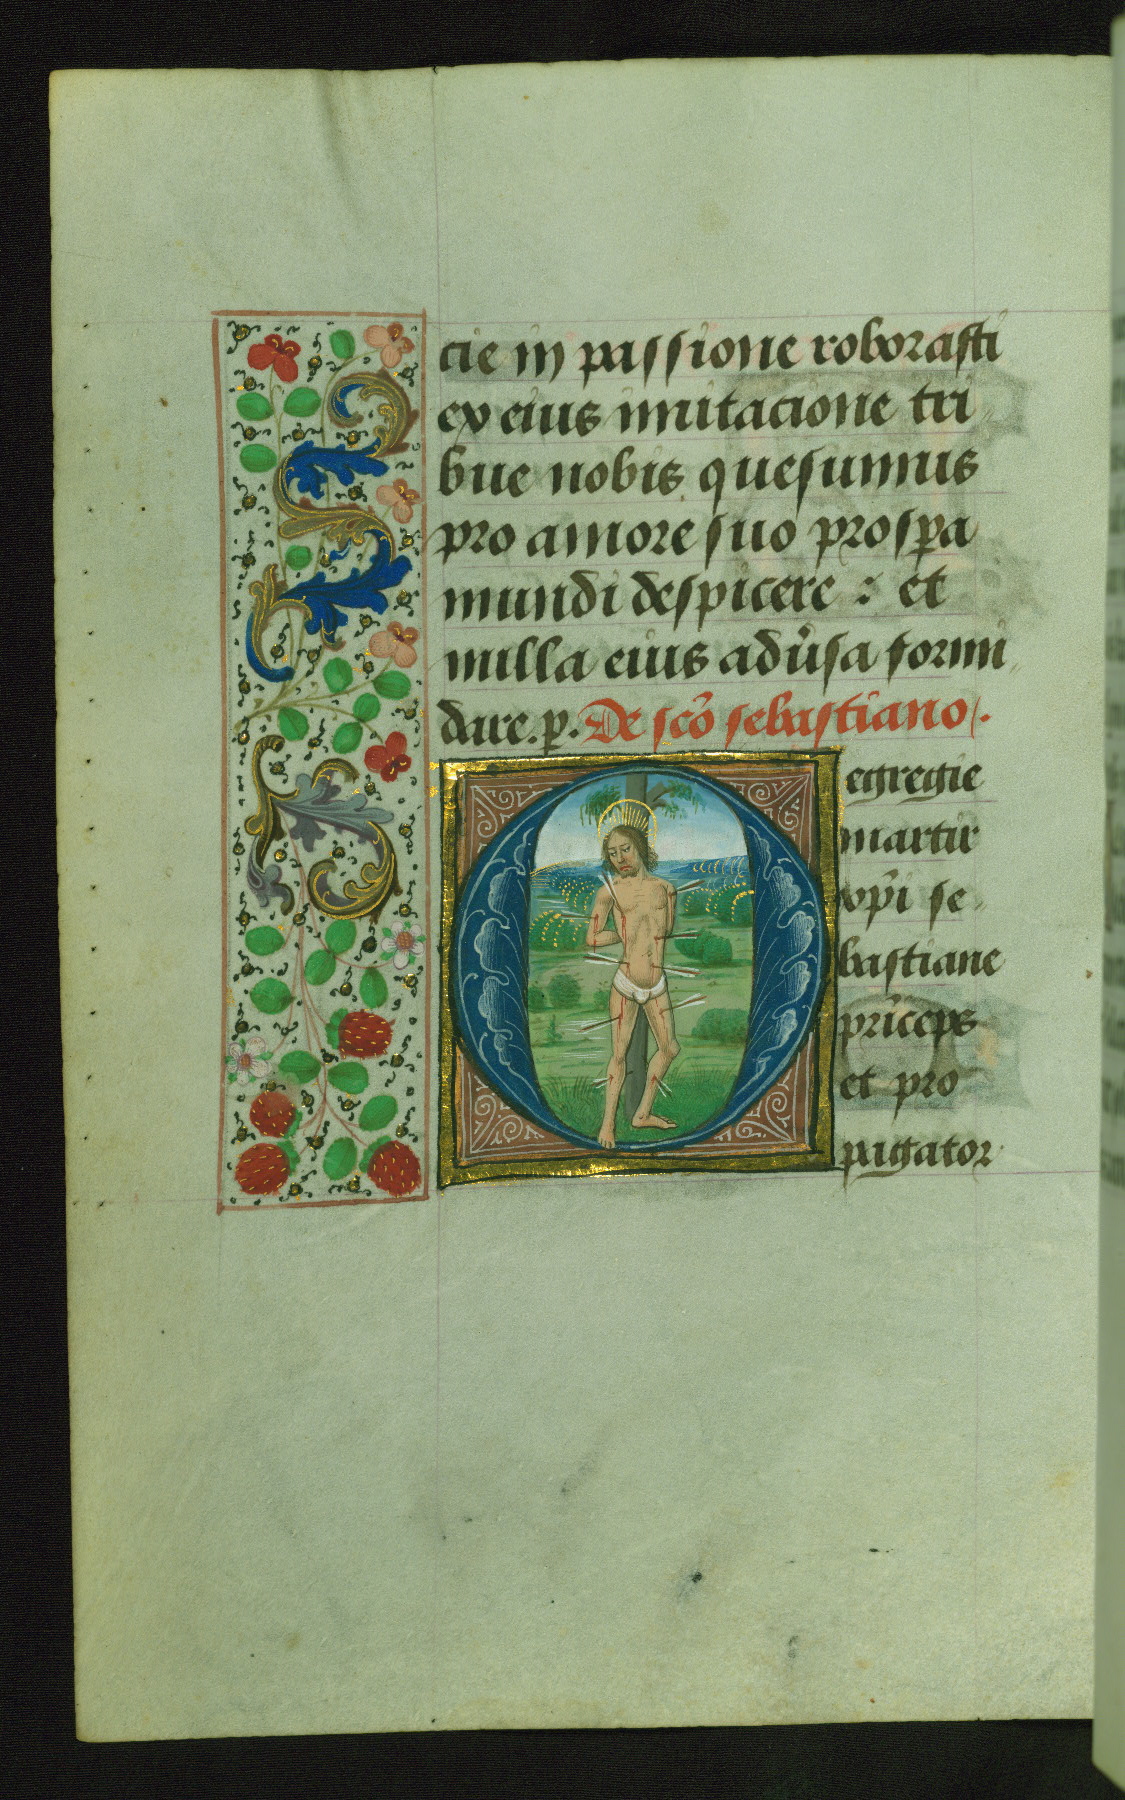 cie in passione roborasti
ex eius imitacione tri
bue nobis quesumus
pro amore suo prospa
mundi despicere : et
nulla eius adũsa formi
dare. p. De scõ sebastiano.
O egregie
martir
xp̃i se
bastiane
prĩceps
et pro
pugator